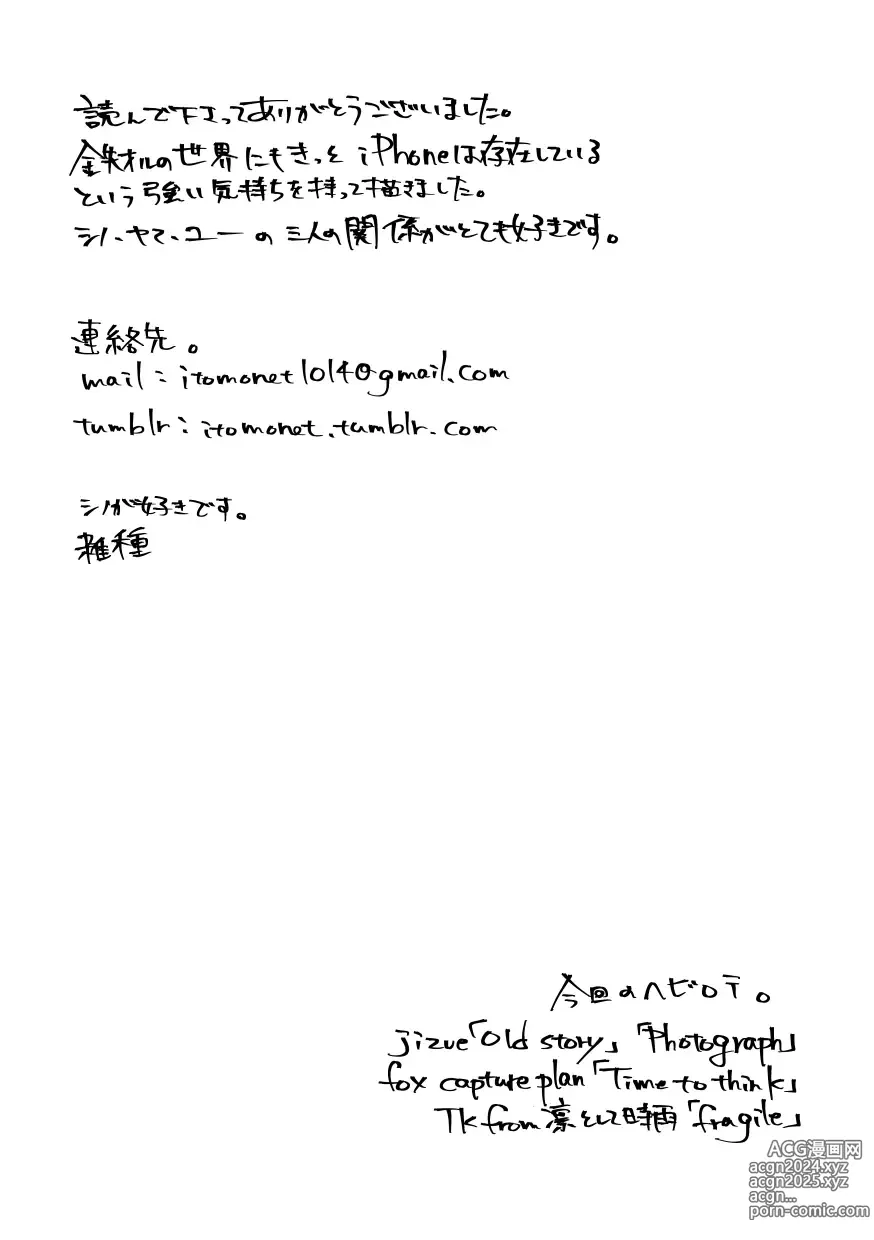 読んで下さってありがとうございました。
鉄オルの世界にもきっと iPhoneは存在している
という強い気持ちを持って描きました。
シノ、ヤマ、ユーの三人の関係がとても好きです。
連絡先。
mail:itomonet1014@gmail.com
tumblr:itomonet.tumblr.com
シノが好きです。
雑種
今回のヘビロテ。
jizue「Old story」「Photograph」
fox capture plan「Time to think」
TK from 凛として時雨「fragile」
ACG漫画网
acgn2024.xyz
acgn2025.xyz
acgn...
porn-comic.com